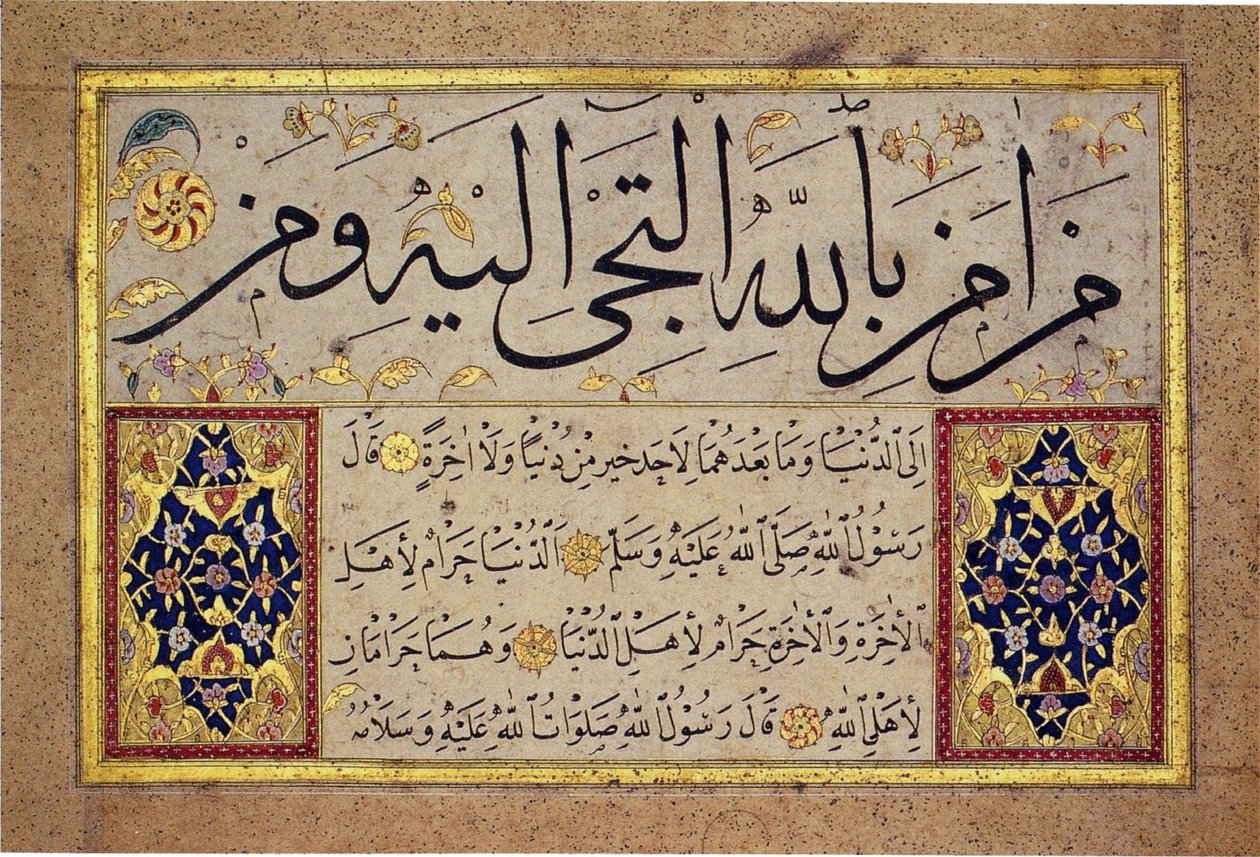 مَنْ اٰمَنَ بِاللّٰهِ الْتَجٰى اِلَيْهِ وَمَنْ
اِلَى الدُّنْيَا وَمَا بَعْدَهُمَا لِاَحَدٍ خَيْرٌ مِنْ دُنْيًا وَلَا اٰخِرَةٍ قَالَ
رَسُولُ اللّٰهِ صَلَّى اللّٰهُ عَلَيْهِ وَسَلَّمَ اَلدُّنْيَا حَرَامٌ لِأَهْلِ
الْاٰخِرَةِ وَالْاٰخِرَةُ حَرَامٌ لِأَهْلِ الدُّنْيَا وَهُمَا حَرَامَانِ
لِأَهْلِ اللّٰهِ قَالَ رَسُولُ اللّٰهِ صَلَوَاتُ اللّٰهِ عَلَيْهِ وَسَلَامُهُ